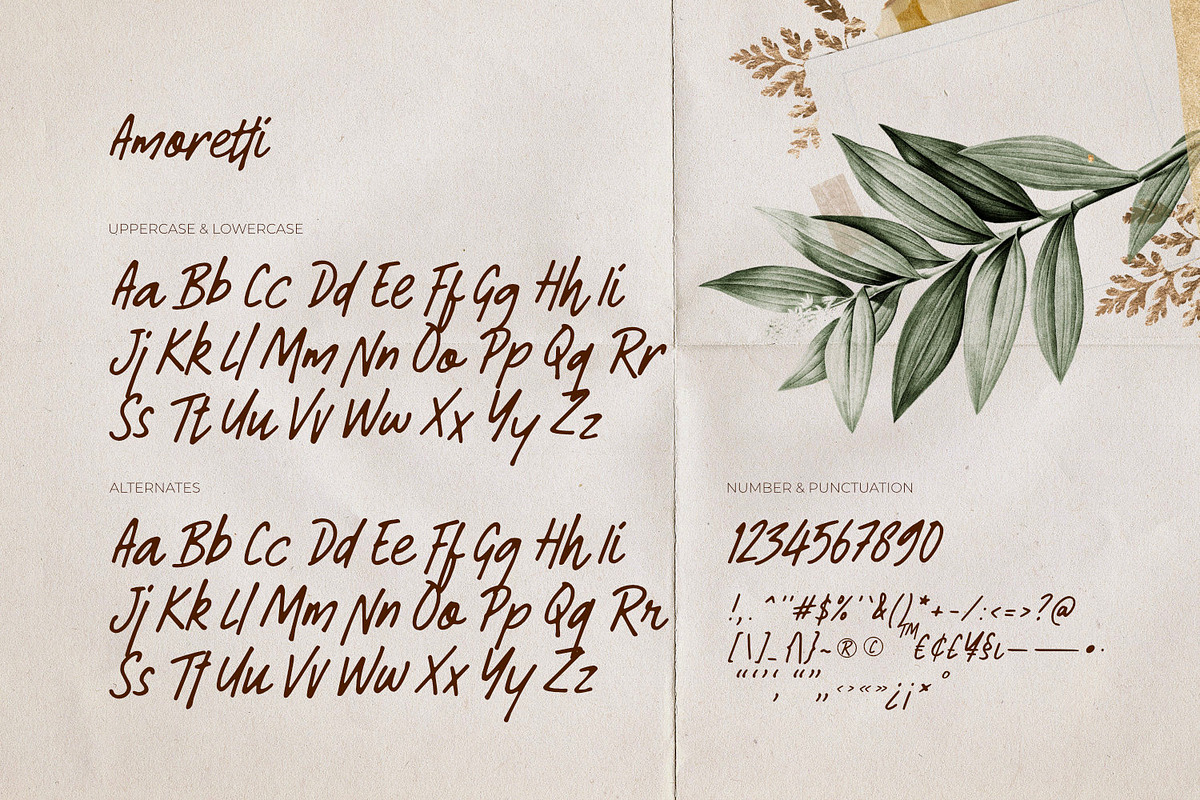 Amoretti
UPPERCASE & LOWERCASE
Aa Bb Cc Dd Ee Ff Gg Hh Ii
Jj Kk Ll Mm Nn Oo Pp Qq Rr
Ss Tt Uu Vv Ww Xx Yy Zz
ALTERNATES
Aa Bb Cc Dd Ee Ff Gg Hh Ii
Jj Kk Ll Mm Nn Oo Pp Qq Rr
Ss Tt Uu Vv Ww Xx Yy Zz
NUMBER & PUNCTUATION
1234567890
!,. ^"#$%'`&()*+-/:<=>?@
[\]_{|}~®©™€¢£¥§ι—–—•·
“‘’‘ “” 
‚ „ ‹›«»¿¡×°